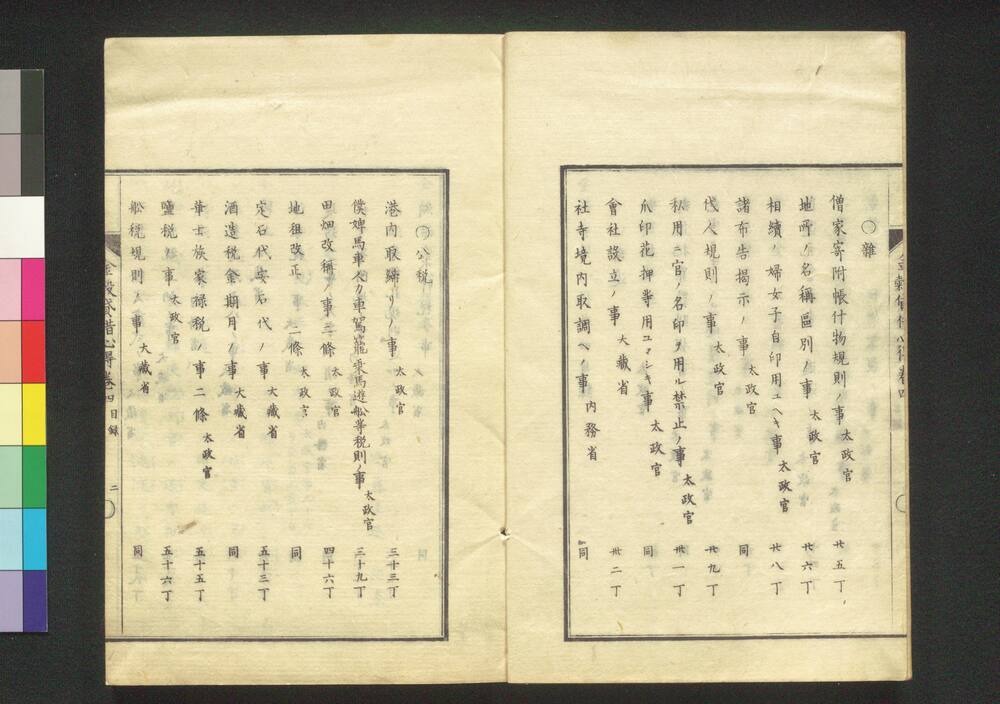 〇雜
僧家寄附帳什物規則ノ事 太政官 廿五丁
地所ノ名稱區別ノ事 太政官 廿六丁
相續ノ婦女子自印用ユヘキ事 太政官 廿八丁
諸布告揭示ノ事 太政官 同
代人規則ノ事 太政官 廿九丁
私用ニ官ノ名印ヲ用ル禁止ノ事 太政官 卅一丁
爪印花押等用ユマシキ事 太政官 同
會社設立ノ事 大藏省 卅二丁
社寺境内取調ヘノ事 内務省 同
〇公税
港内取締リノ事 太政官 三十三丁
僕婢馬車人力車駕籠乘馬遊舩等税則ノ事 太政官 三十九丁
田畑改稱ノ事三條 太政官 四十六丁
地租改正 二條 太政官 同
定石代安石代ノ事 大藏省 五十三丁
酒造税金期月ノ事 大藏省 同
華士族家禄税ノ事二條 太政官 五十五丁
鹽税ノ事 太政官 五十六丁
舩税規則ノ事 大藏省 同
金穀貸借心得卷四目録 二